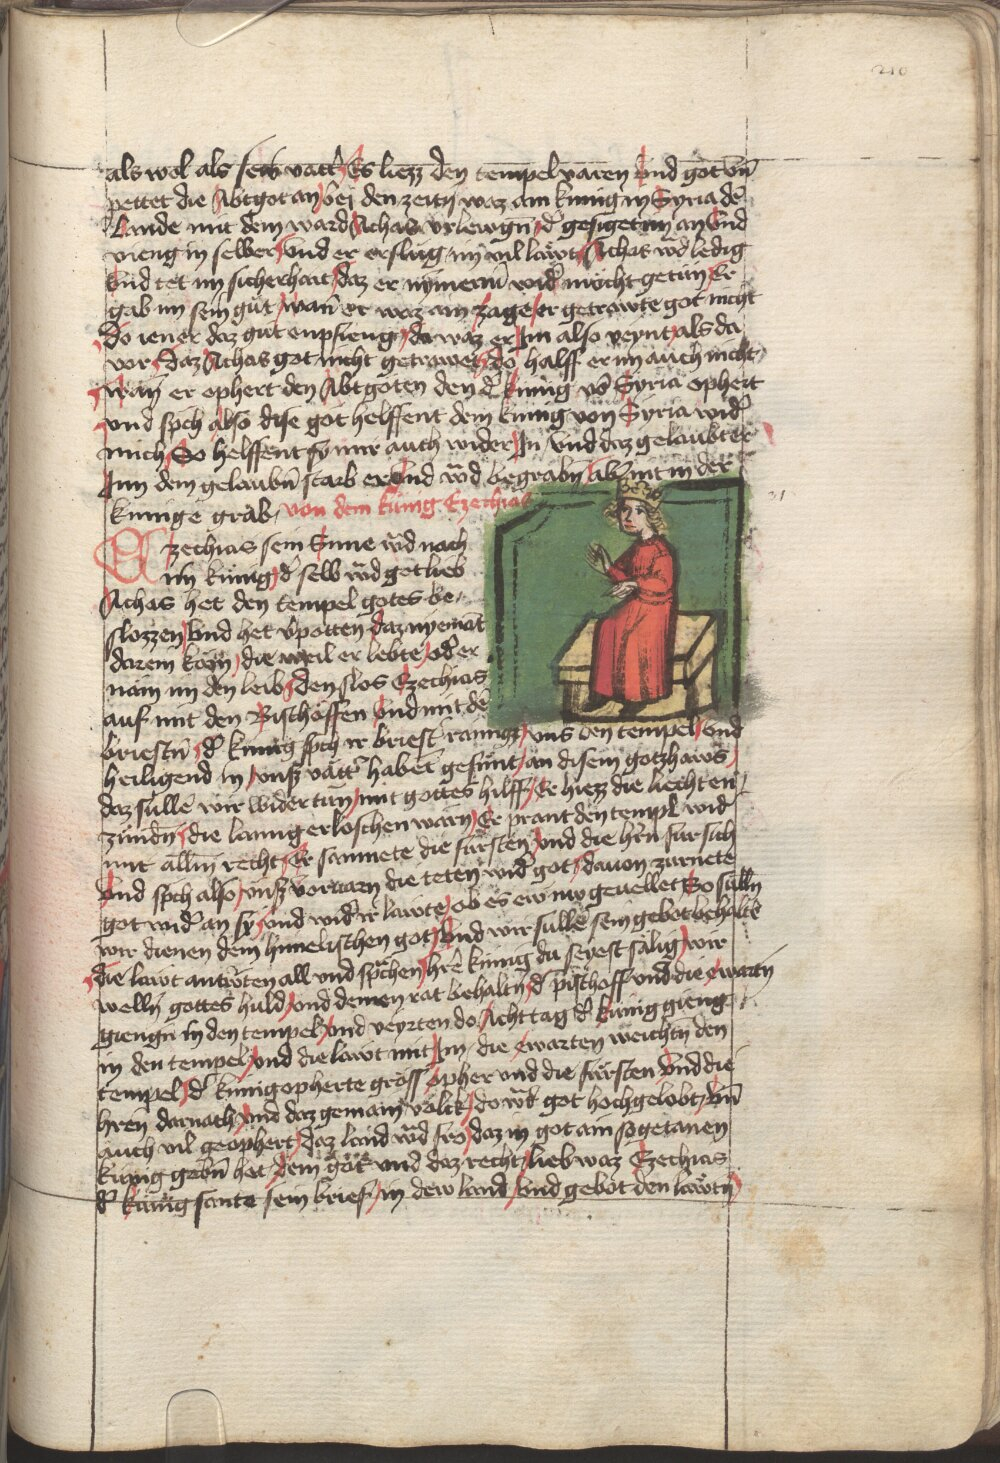 210
als wol als sein vatt͛ Es liezz den tempel varen Vnd got vn̄
pettet die Abtgot an beÿ den zeitn̄ waz ain kunig in Syria dē
Lande mit dem ward Achas vrlewgn̄ d͛ gesiget im an Vnd
vieng in selber vnd er erslug im vil läwt Achas wd̄ ledig
Vnd tet im sicherhait daz er nÿmerm̄ wid͛ in möcht getün Er
gab im sein güt wan̄ er waz ain zage er getrawte got nicht
Do iener daz güt enpfieng da waz er Im also veynt als da
vor daz Achas got nicht getrawet do halff er im auch nicht
wan̄ er ophert den Abtgoten den d͛ kunig vō Syria ophert
vnd spch also dise göt helffent dem kunig von Syria wid͛
mich So helffent sy mir auch wider In vnd daz gelaubt er
Inn dem gelaubn̄ starb er Vnd wd̄ begrabn̄ ab͛ nit in der
kunige grab von dem kunig Ezechias
31
Ezechias sein Sune wd̄ nach
im kunig d͛ selb wd̄ got lieb
Achas het den tempel gotes be-
slozzen Vnd het v͛potten daz nyemāt
darein köm die weil er lebte od͛ er
näm im den leib den slos Ezechias
auf mit den Bischoffen vnd mit dē
briestn̄ d͛ kunig spch ir briest͛ rainigt vns den tempel vnd
heiligend in vnsz vätt͛ habēt gesünt an disem gotzhaws
daz süllē wir wider tün mit gottes hilff Er hiezz die liechten
zündn̄ die lanng erloschen warn̄ Er prant den templ wid͛
mit allm̄ recht Er sammete die fürsten vnd die hrn̄ für sich
vnd spch also vnsz vorvarn die teten wid͛ got dauon zürnete
got wid͛ an sy vnd wid͛ ir lawte ob es ew nw geuellet So sülln̄
wir dienen dem himelischen got Vnd wir süllē sein gebot behaltē
die lawt antwrten all vnd sprachen hrē kunig du seyest sälig wir
welln̄ gottes huld vnd deinen rat behaltn̄ d͛ pischoff vnd die ewartn̄
giengn̄ in den tempel vnd veyrten do Acht tag d͛ kunig gieng
in den tempel vnd die lawt mit Im die ewarten weichtn̄ den
tempel d͛ kunig opherte gröss opher vnd die fürsten Vnd die
hren darnach vnd daz gemain volck do wt̄ got hoch gelobt vn̄
auch vil geophert daz land wd̄ fro daz in got ain sogetanen
kunig gebn̄ het dem göt vnd daz recht lieb waz Ezechias
d͛ kunig sante sein brief in dew land Vnd gebot den lawtn̄